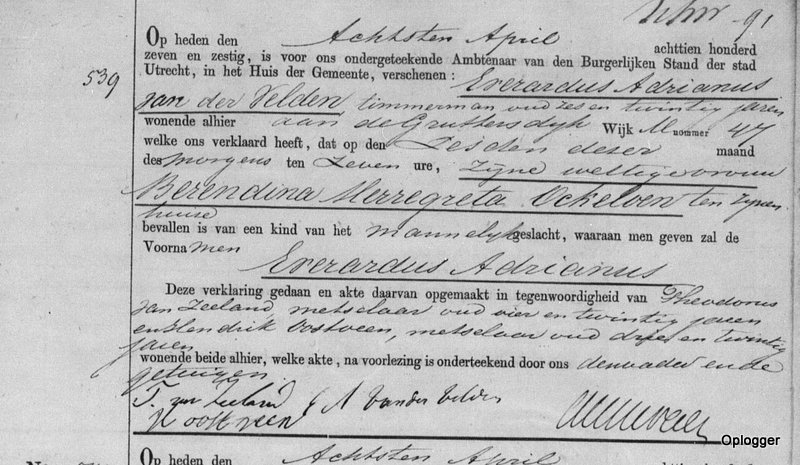 91
Op heden den Achtsten April achttien honderd
539
zeven en zestig, is voor ons ondergeteekende Ambtenaar van den Burgerlijken Stand der stad
Utrecht, in het Huis der Gemeente, verschenen: Everardus Adrianus
van der Velden, timmerman oud zes en twintig jaren
wonende alhier aan de Gruttersdyk Wijk M nommer 47
welke ons verklaard heeft, dat op den Zesden dezer maand
des morgens ten Zeven ure, zijne wettige vrouw
Berendina Merregreta Ockeloen ten zynen
huise
bevallen is van een kind van het mannelyk geslacht, waaraan men geven zal de
Voornamen
Everardus Adrianus
Deze verklaring gedaan en akte daarvan opgemaakt in tegenwoordigheid van Theodorus
van Zeeland metselaar oud vier en twintig jaren
en Hendrik Oostveen, metselaar oud drie en twintig
jaren
wonende beide alhier, welke akte, na voorlezing is onderteekend door ons den vader en de
getuigen
T. van Zeeland E A van der Velden
H oostveen
Oplogger
Op heden den Achtsten April